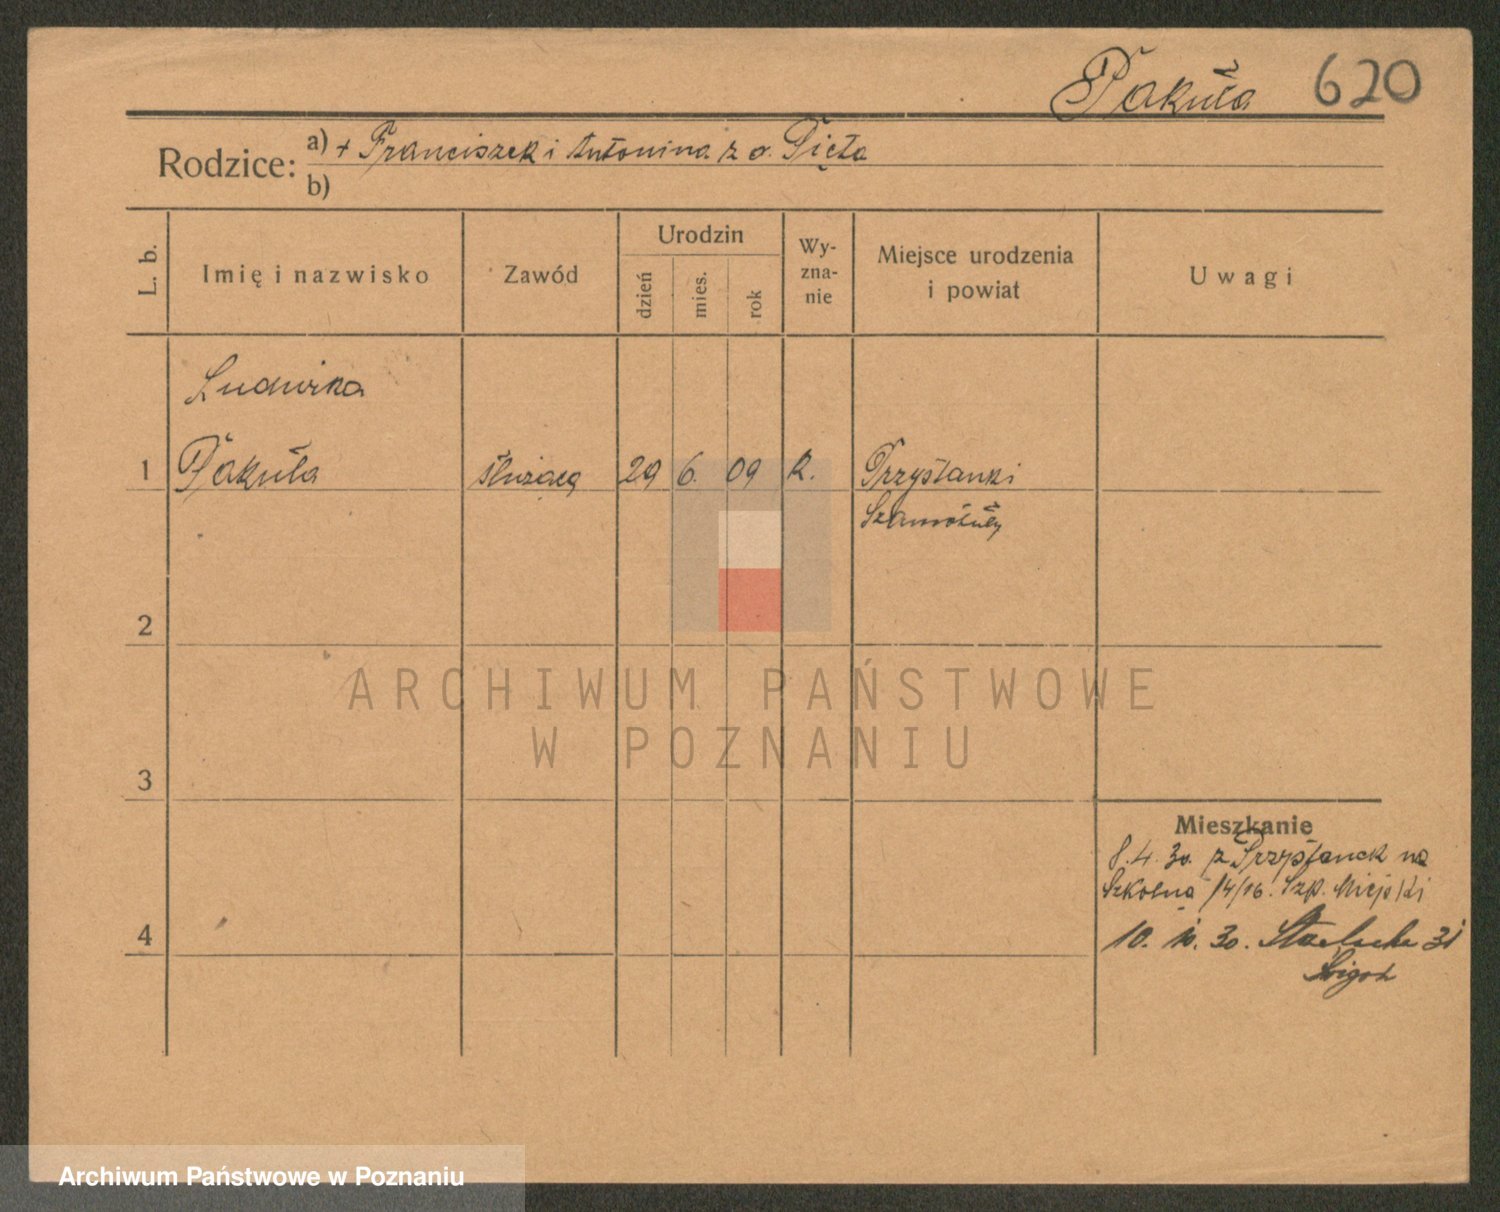 Pakuła 620
Rodzice: a) + Franciszek i Antonina z d. Pięta
b)
L. b.
Imię i nazwisko
Zawód
Urodzin
dzień
mies.
rok
Wy-
zna-
nie
Miejsce urodzenia
i powiat
Uwagi
Ludwika
1 Pakuła służąca 29 6. 09 R. Przystanki
Szamotuły
2
3
4
Mieszkanie
8.4.30. z Przystanek na
Szkolną 14/16. Szp. Miejski
10. 10. 30. 31
ARCHIWUM PAŃSTWOWE
W POZNANIU
Archiwum Państwowe w Poznaniu